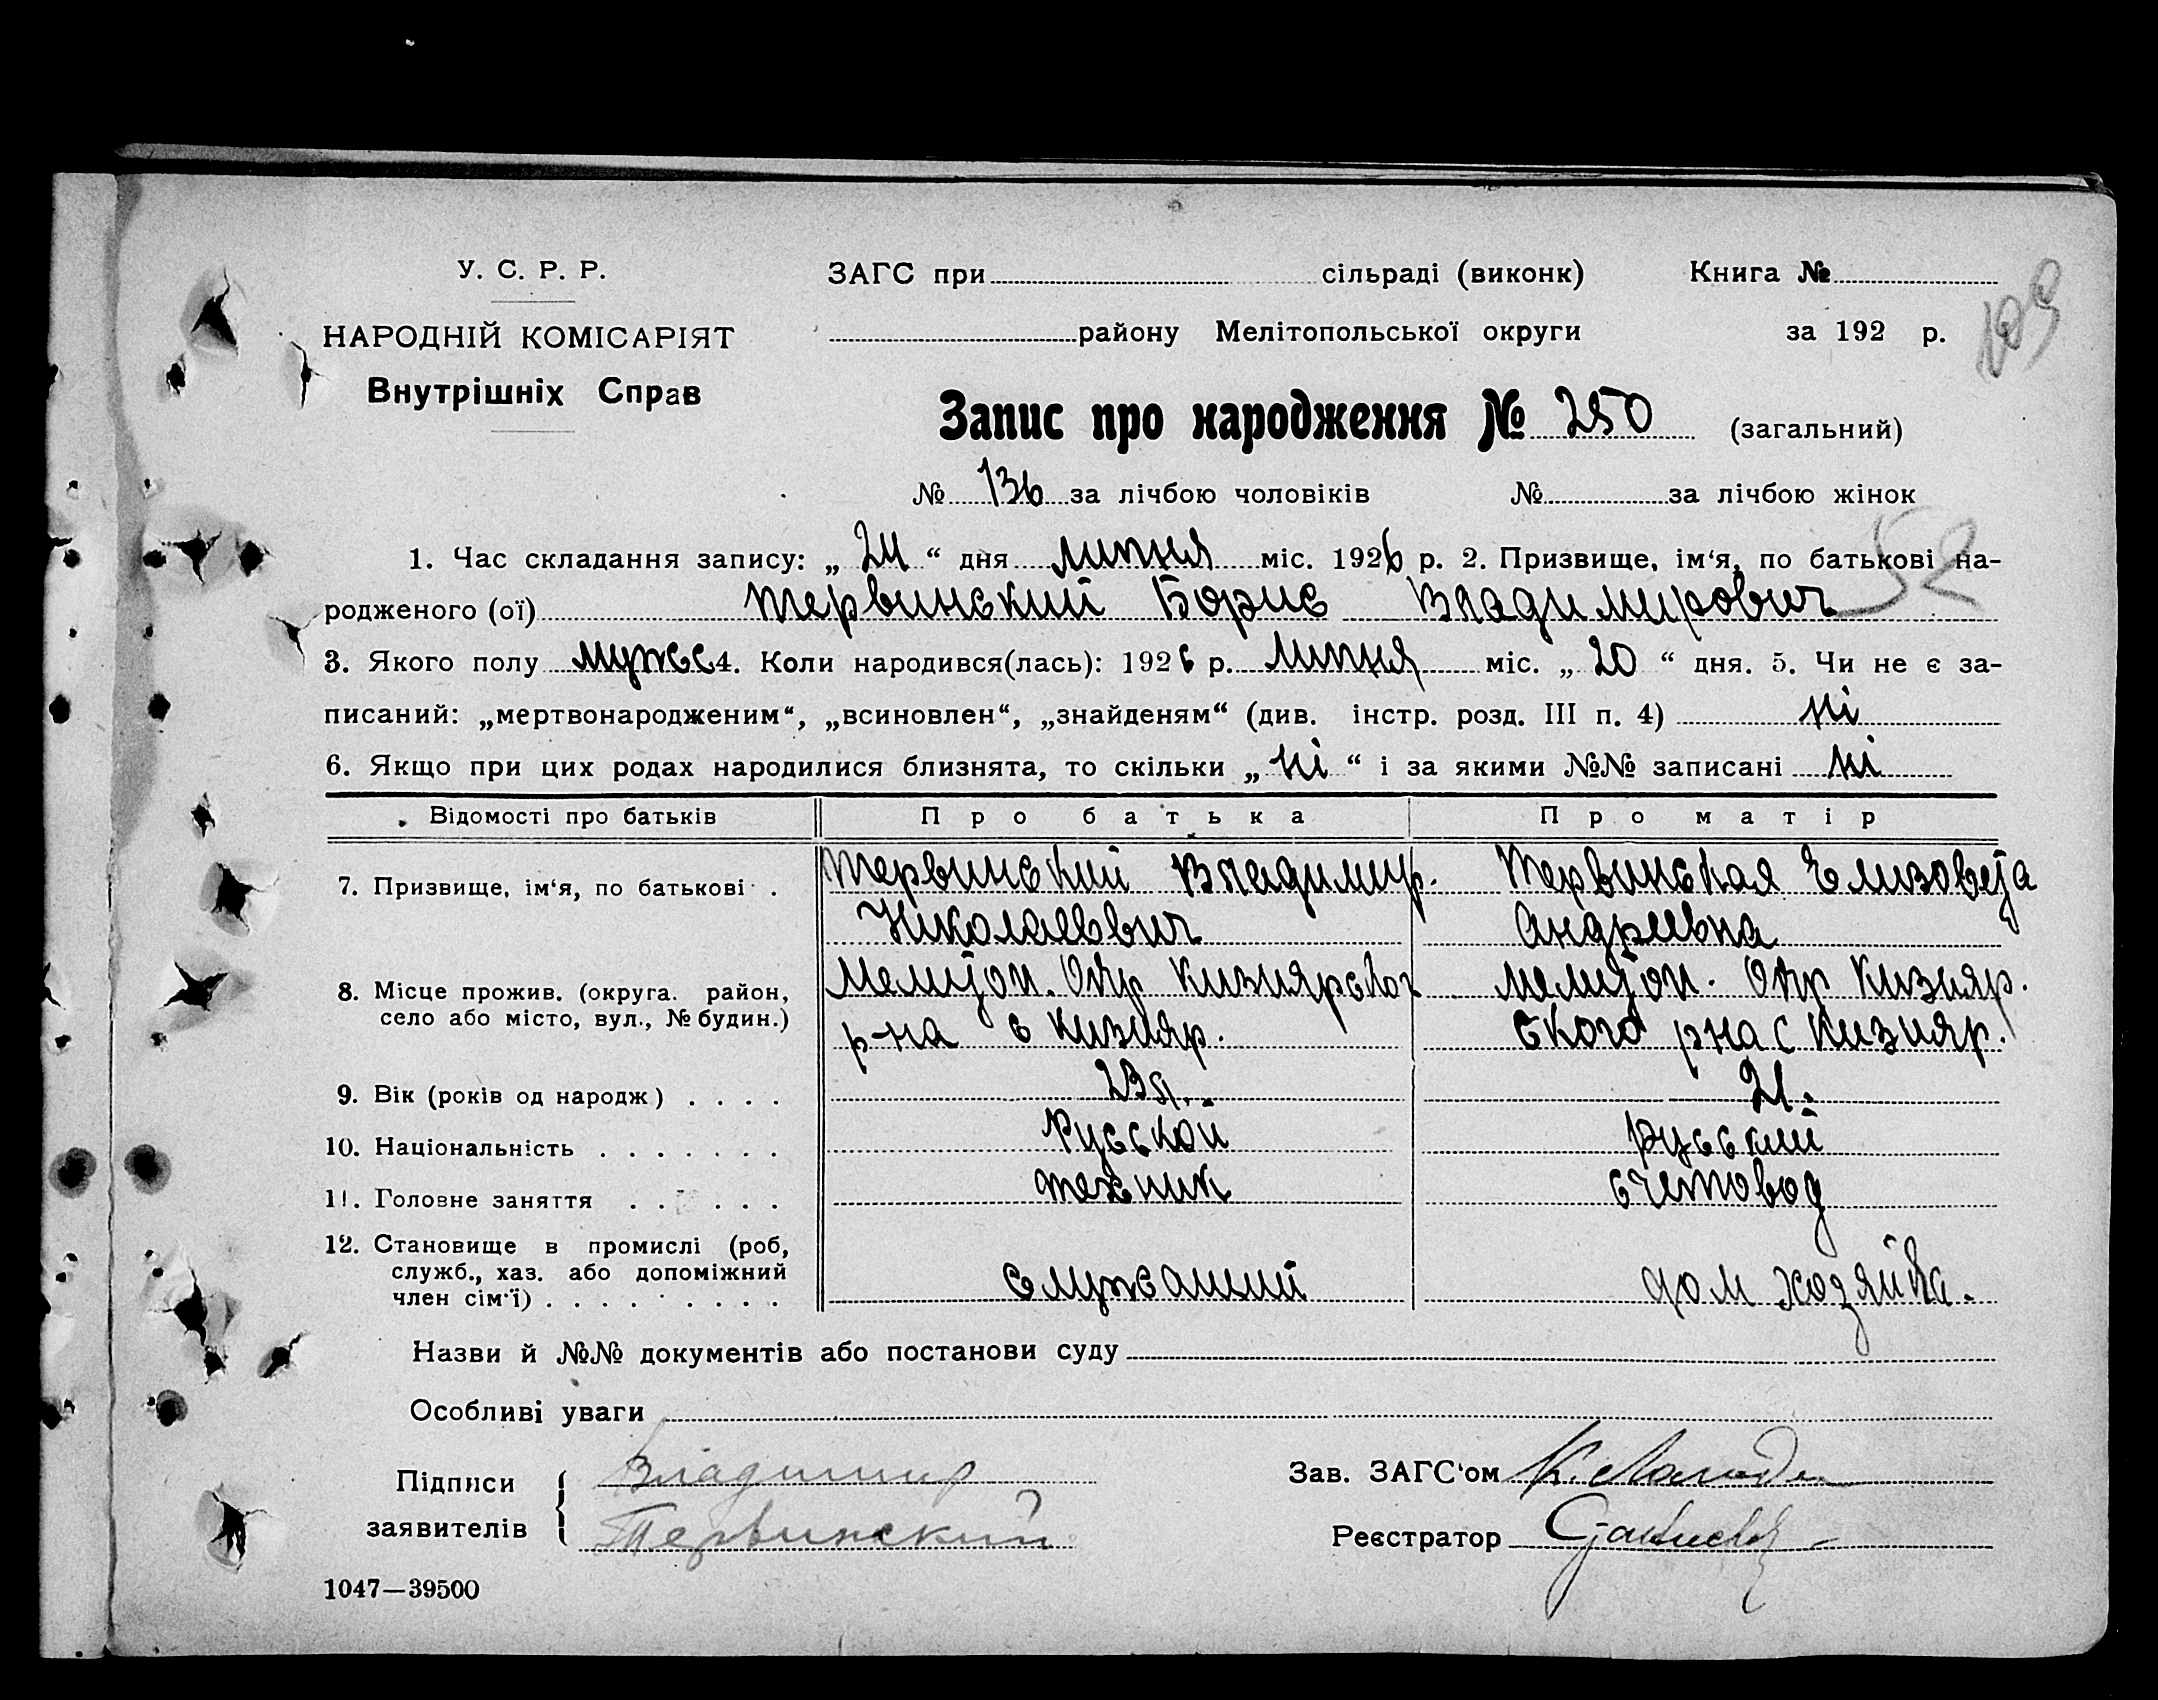 У. С. Р. Р.
НАРОДНІЙ КОМІСАРІЯТ
Внутрішніх Справ
ЗАГС при сільраді (виконк) Книга №
району Мелітопольської округи за 192 р.
109
Запис про народження № 250 (загальний)
№ 136 за лічбою чоловіків № за лічбою жінок
52
1. Час складання запису: „ 24 “ дня липня міс. 1926 р. 2. Призвище, ім‘я, по батькові на-
родженого (ої) Тервинский Борис Владимирович
3. Якого полу мужес 4. Коли народився(лась): 1926 р. липня міс. „ 20 “ дня. 5. Чи не є за-
писаний: „мертвонародженим“, „всиновлен“, „знайденям“ (див. інстр. розд. III п. 4) ні
6. Якщо при цих родах народилися близнята, то скільки „ ні “ і за якими №№ записані ні
Відомості про батьків Про батька Про матір
7. Призвище, ім‘я, по батькові . Тервинский Владимир. Тервинская Елизовета
Николаевич Андреевна
8. Місце прожив. (округа. район, Мелитоп. Окр Кизиярског Мелитоп. Окр Кизияр.
село або місто, вул., № будин.) р-на с Кизияр. ского рна с Кизияр.
9. Вік (років од народж) . . . . 23 л. 21.
10. Національність . . . . . . . Русской русский
11. Головне заняття . . . . . . техник счетовод
12. Становище в промислі (роб,
служб., хаз. або допоміжний
член сім‘ї) . . . . . . . . . служащий дом хозяйка.
Назви й №№ документів або постанови суду
Особливі уваги
Підписи
заявителів
Владимир
Тервинский
Зав. ЗАГС‘ом
Реєстратор
1047—39500